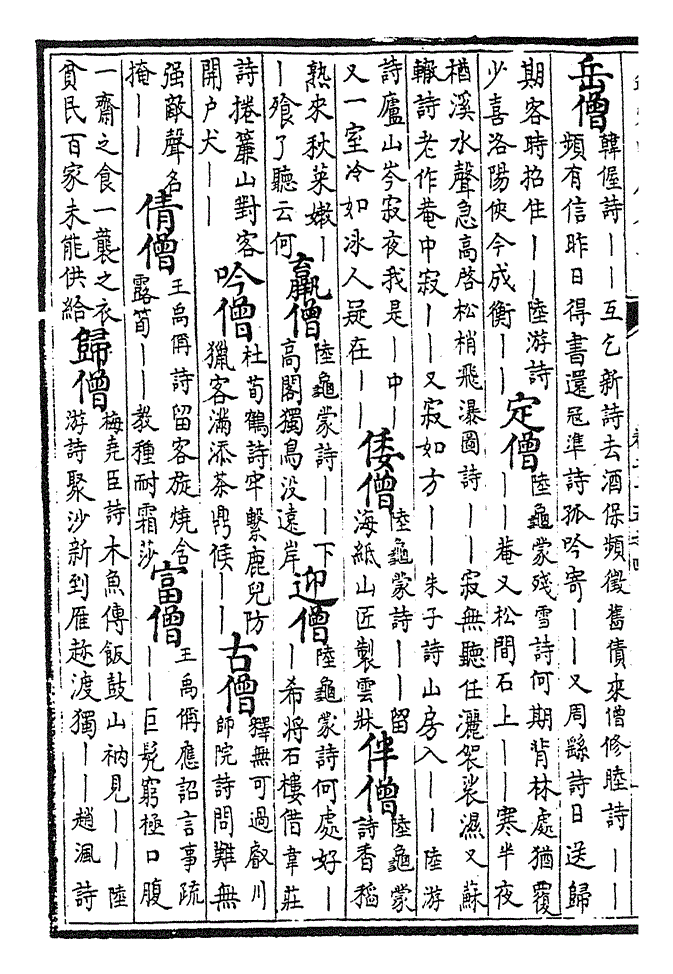 岳僧
韓偓詩｜｜互乞新詩去酒保頻徵舊債來僧修睦詩｜｜
頻有信昨日得書還冠準詩孤吟寄｜｜又周繇詩日送歸
期客時招住｜｜陸游詩
少喜洛陽俠今成衡｜｜
定僧
陸龜蒙殘雪詩何期背林處猶覆
｜｜菴又松間石上｜｜寒半夜
楢溪水聲急高啓松梢飛瀑圖詩｜｜寂無聽任灑袈裟濕又蘇
轍詩老作菴中寂｜｜又寂如方｜｜朱子詩山房入｜｜陸游
詩廬山岑寂夜我是｜中｜
又一室冷如冰人疑在｜｜
倭僧
陸龜蒙詩｜｜留
海紙山匠製雲牀
伴僧
陸龜蒙
詩香稻
熟來秋菜嫩｜
｜飱了聽云何
羸僧
陸龜蒙詩｜｜下
高閣獨鳥没遠岸
迎僧
陸龜蒙詩何處好｜
｜希將石樓借韋莊
詩捲簾山對客
開户犬｜｜
吟僧
杜荀鶴詩牢繫鹿兒防
獵客滿添茶鼎候｜｜
古僧
釋無可過叡川
師院詩問難無
强敵聲名
掩｜｜
倩僧
王禹偁詩留客旋燒含
露筍｜｜教種耐霜莎
富僧
王禹偁應詔言事疏
｜｜巨髡窮極口腹
一齋之食一襲之衣
貧民百家未能供給
歸僧
梅堯臣詩木魚傳飯鼓山衲見｜｜陸
游詩聚沙新到雁趂渡獨｜｜趙渢詩